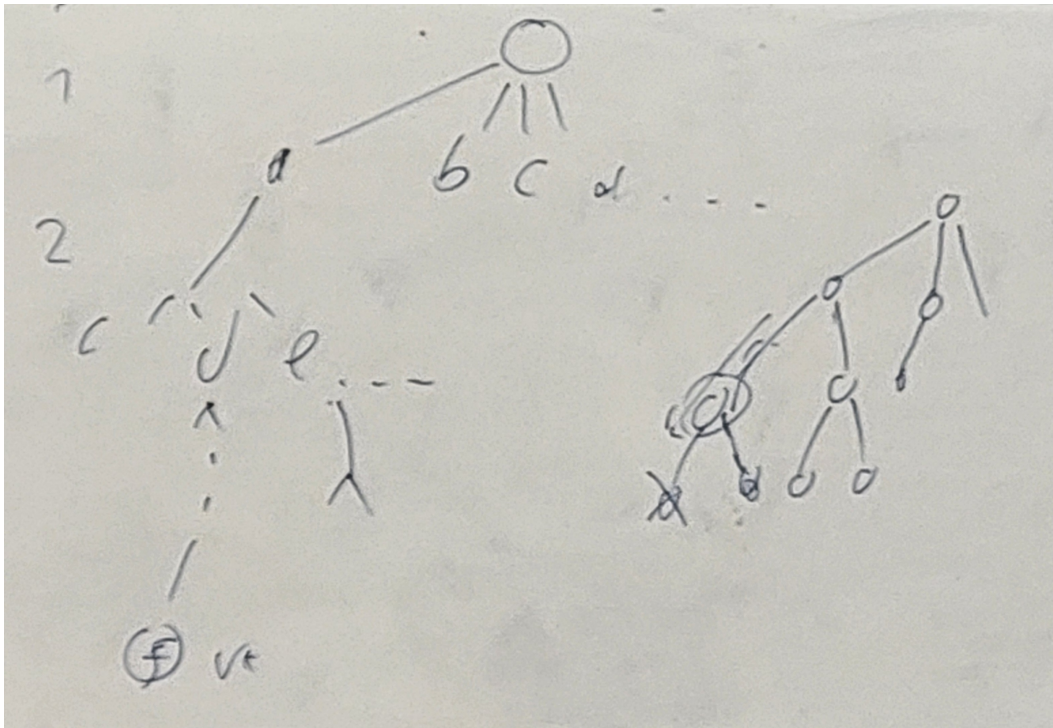 1
a b c d . . . .
2
c d e . - - -
f